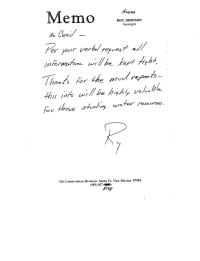 Memo
From
ROY JOHNSON
Geologist
Per your verbal request all
information will be kept tight.
Thanks for the mud reports -
this info will be highly valuable
for those studing water resources.
Roy
Oil Conservation Division Santa Fe, New Mexico 87501